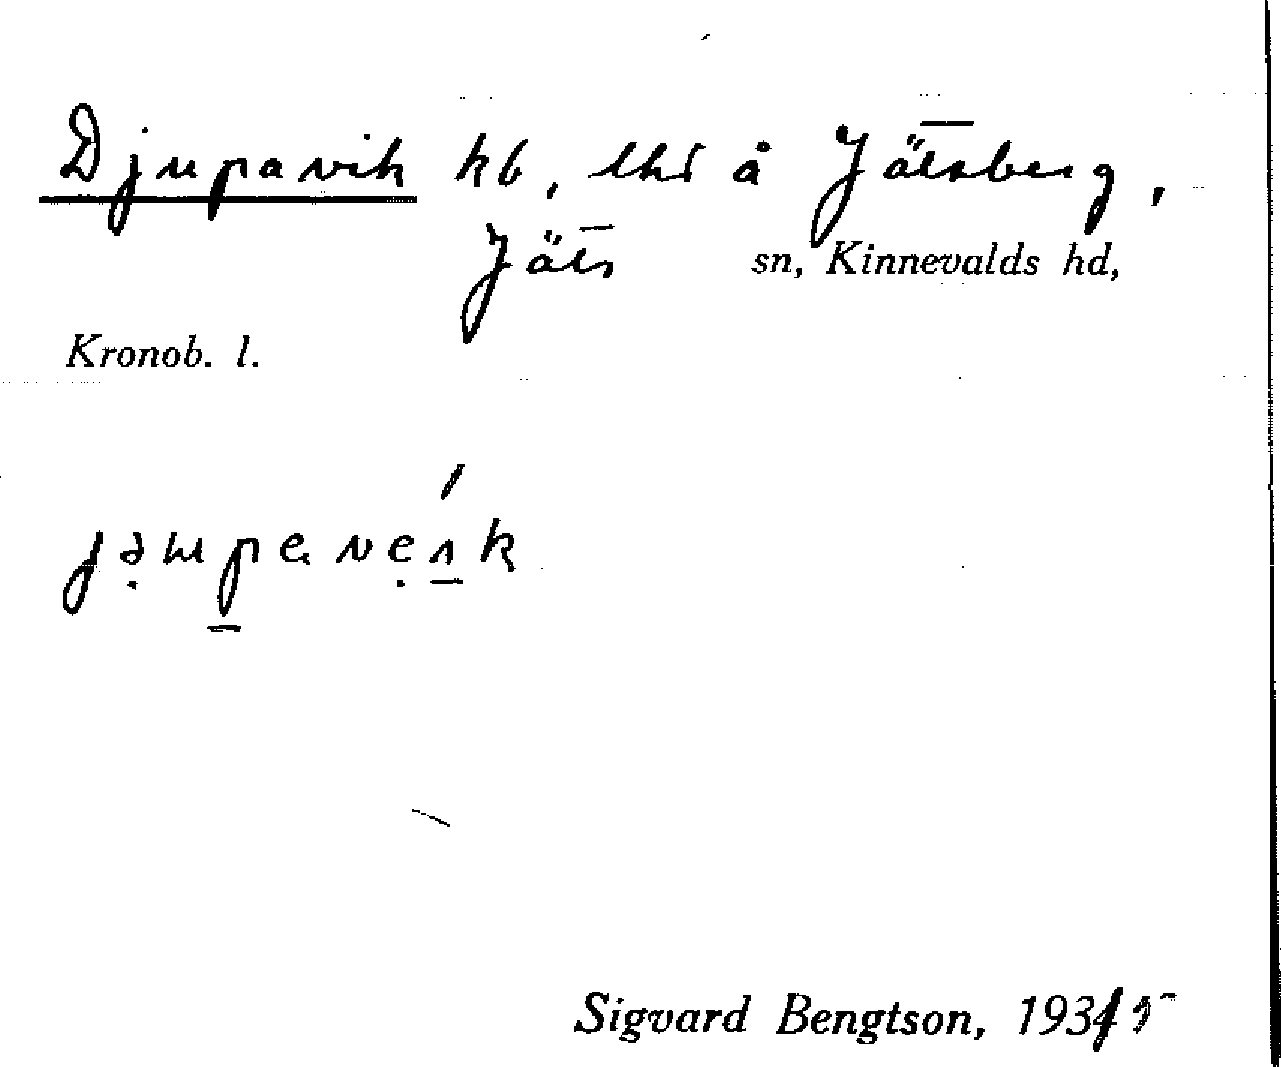 Djupavik kb, lhs å Jätsberg,
Jäts sn, Kinnevalds hd,
Kronob. l.
Sigvard Bengtson, 1935